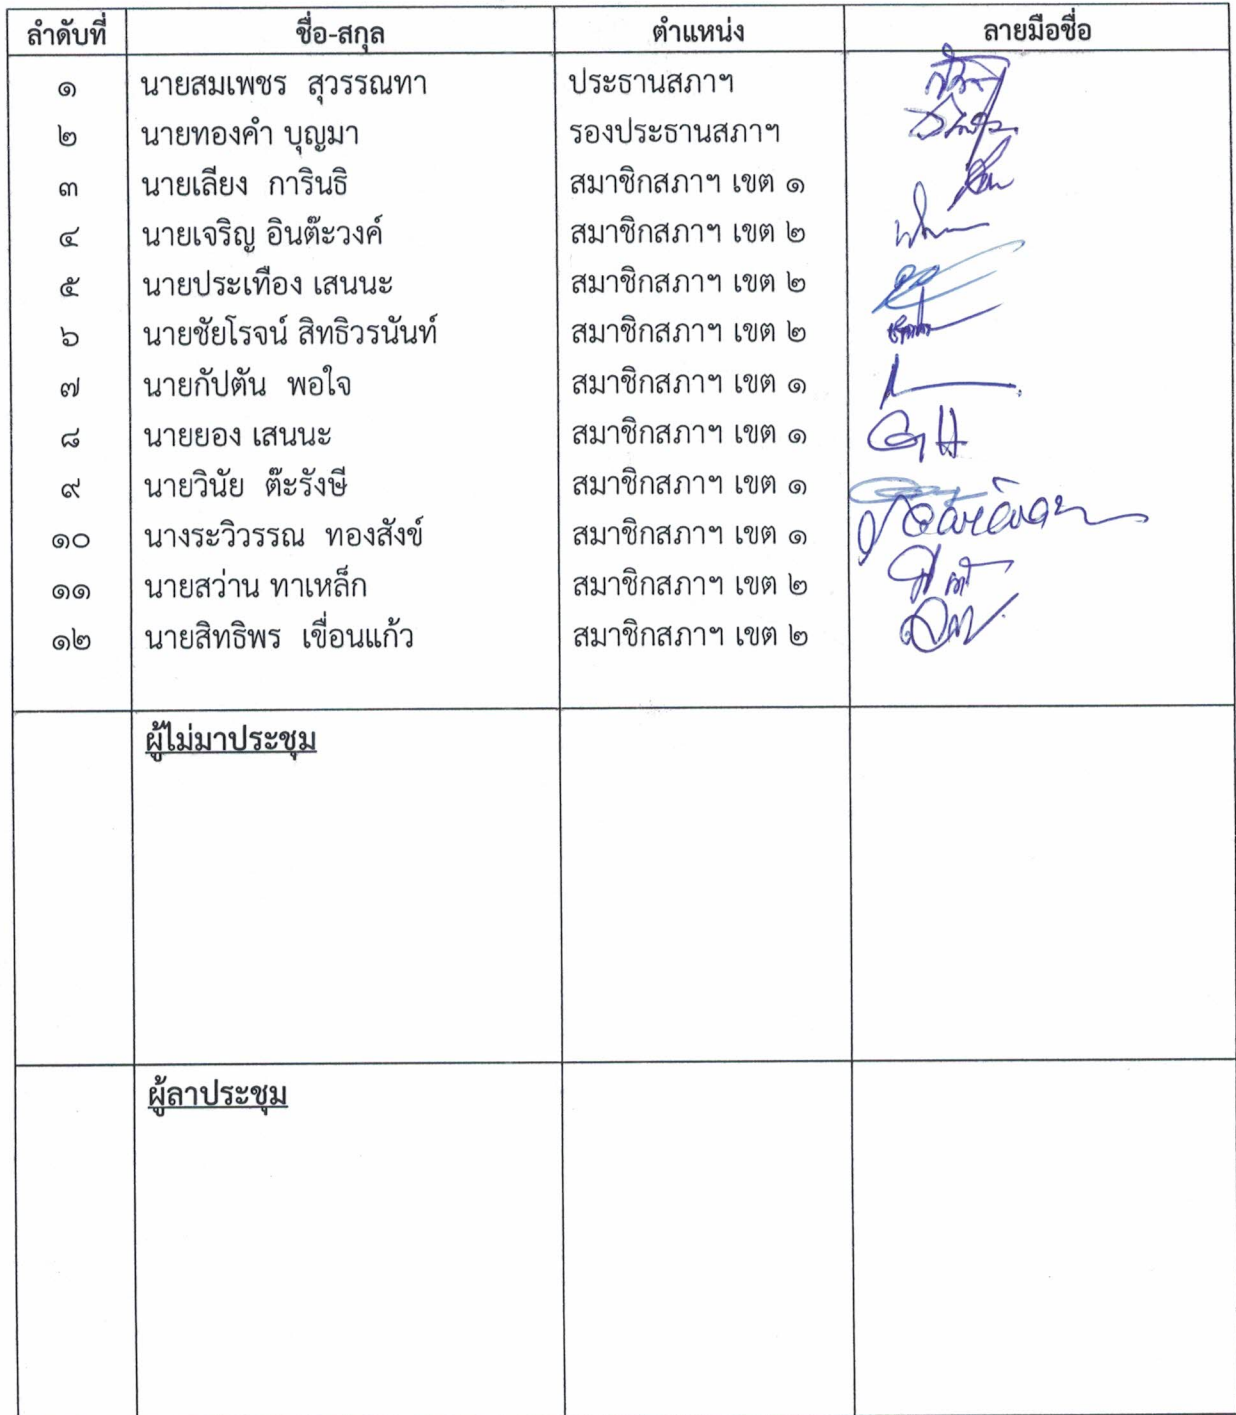 ลำดับที่ ชื่อ-สกุล ตำแหน่ง ลายมือชื่อ
๑ นายสมเพชร สุวรรณทา ประธานสภาฯ
๒ นายทองคำ บุญมา รองประธานสภาฯ
๓ นายเลียง การินธิ สมาชิกสภาฯ เขต ๑
๔ นายเจริญ อินต๊ะวงค์ สมาชิกสภาฯ เขต ๒
๕ นายประเทือง เสนนะ สมาชิกสภาฯ เขต ๒
๖ นายชัยโรจน์ สิทธิวรนันท์ สมาชิกสภาฯ เขต ๒
๗ นายกัปตัน พอใจ สมาชิกสภาฯ เขต ๑
๘ นายยอง เสนนะ สมาชิกสภาฯ เขต ๑
๙ นายวินัย ต๊ะรังษี สมาชิกสภาฯ เขต ๑
๑๐ นางระวิวรรณ ทองสังข์ สมาชิกสภาฯ เขต ๑
๑๑ นายสว่าน ทาเหล็ก สมาชิกสภาฯ เขต ๒
๑๒ นายสิทธิพร เขื่อนแก้ว สมาชิกสภาฯ เขต ๒
ผู้ไม่มาประชุม
ผู้ลาประชุม